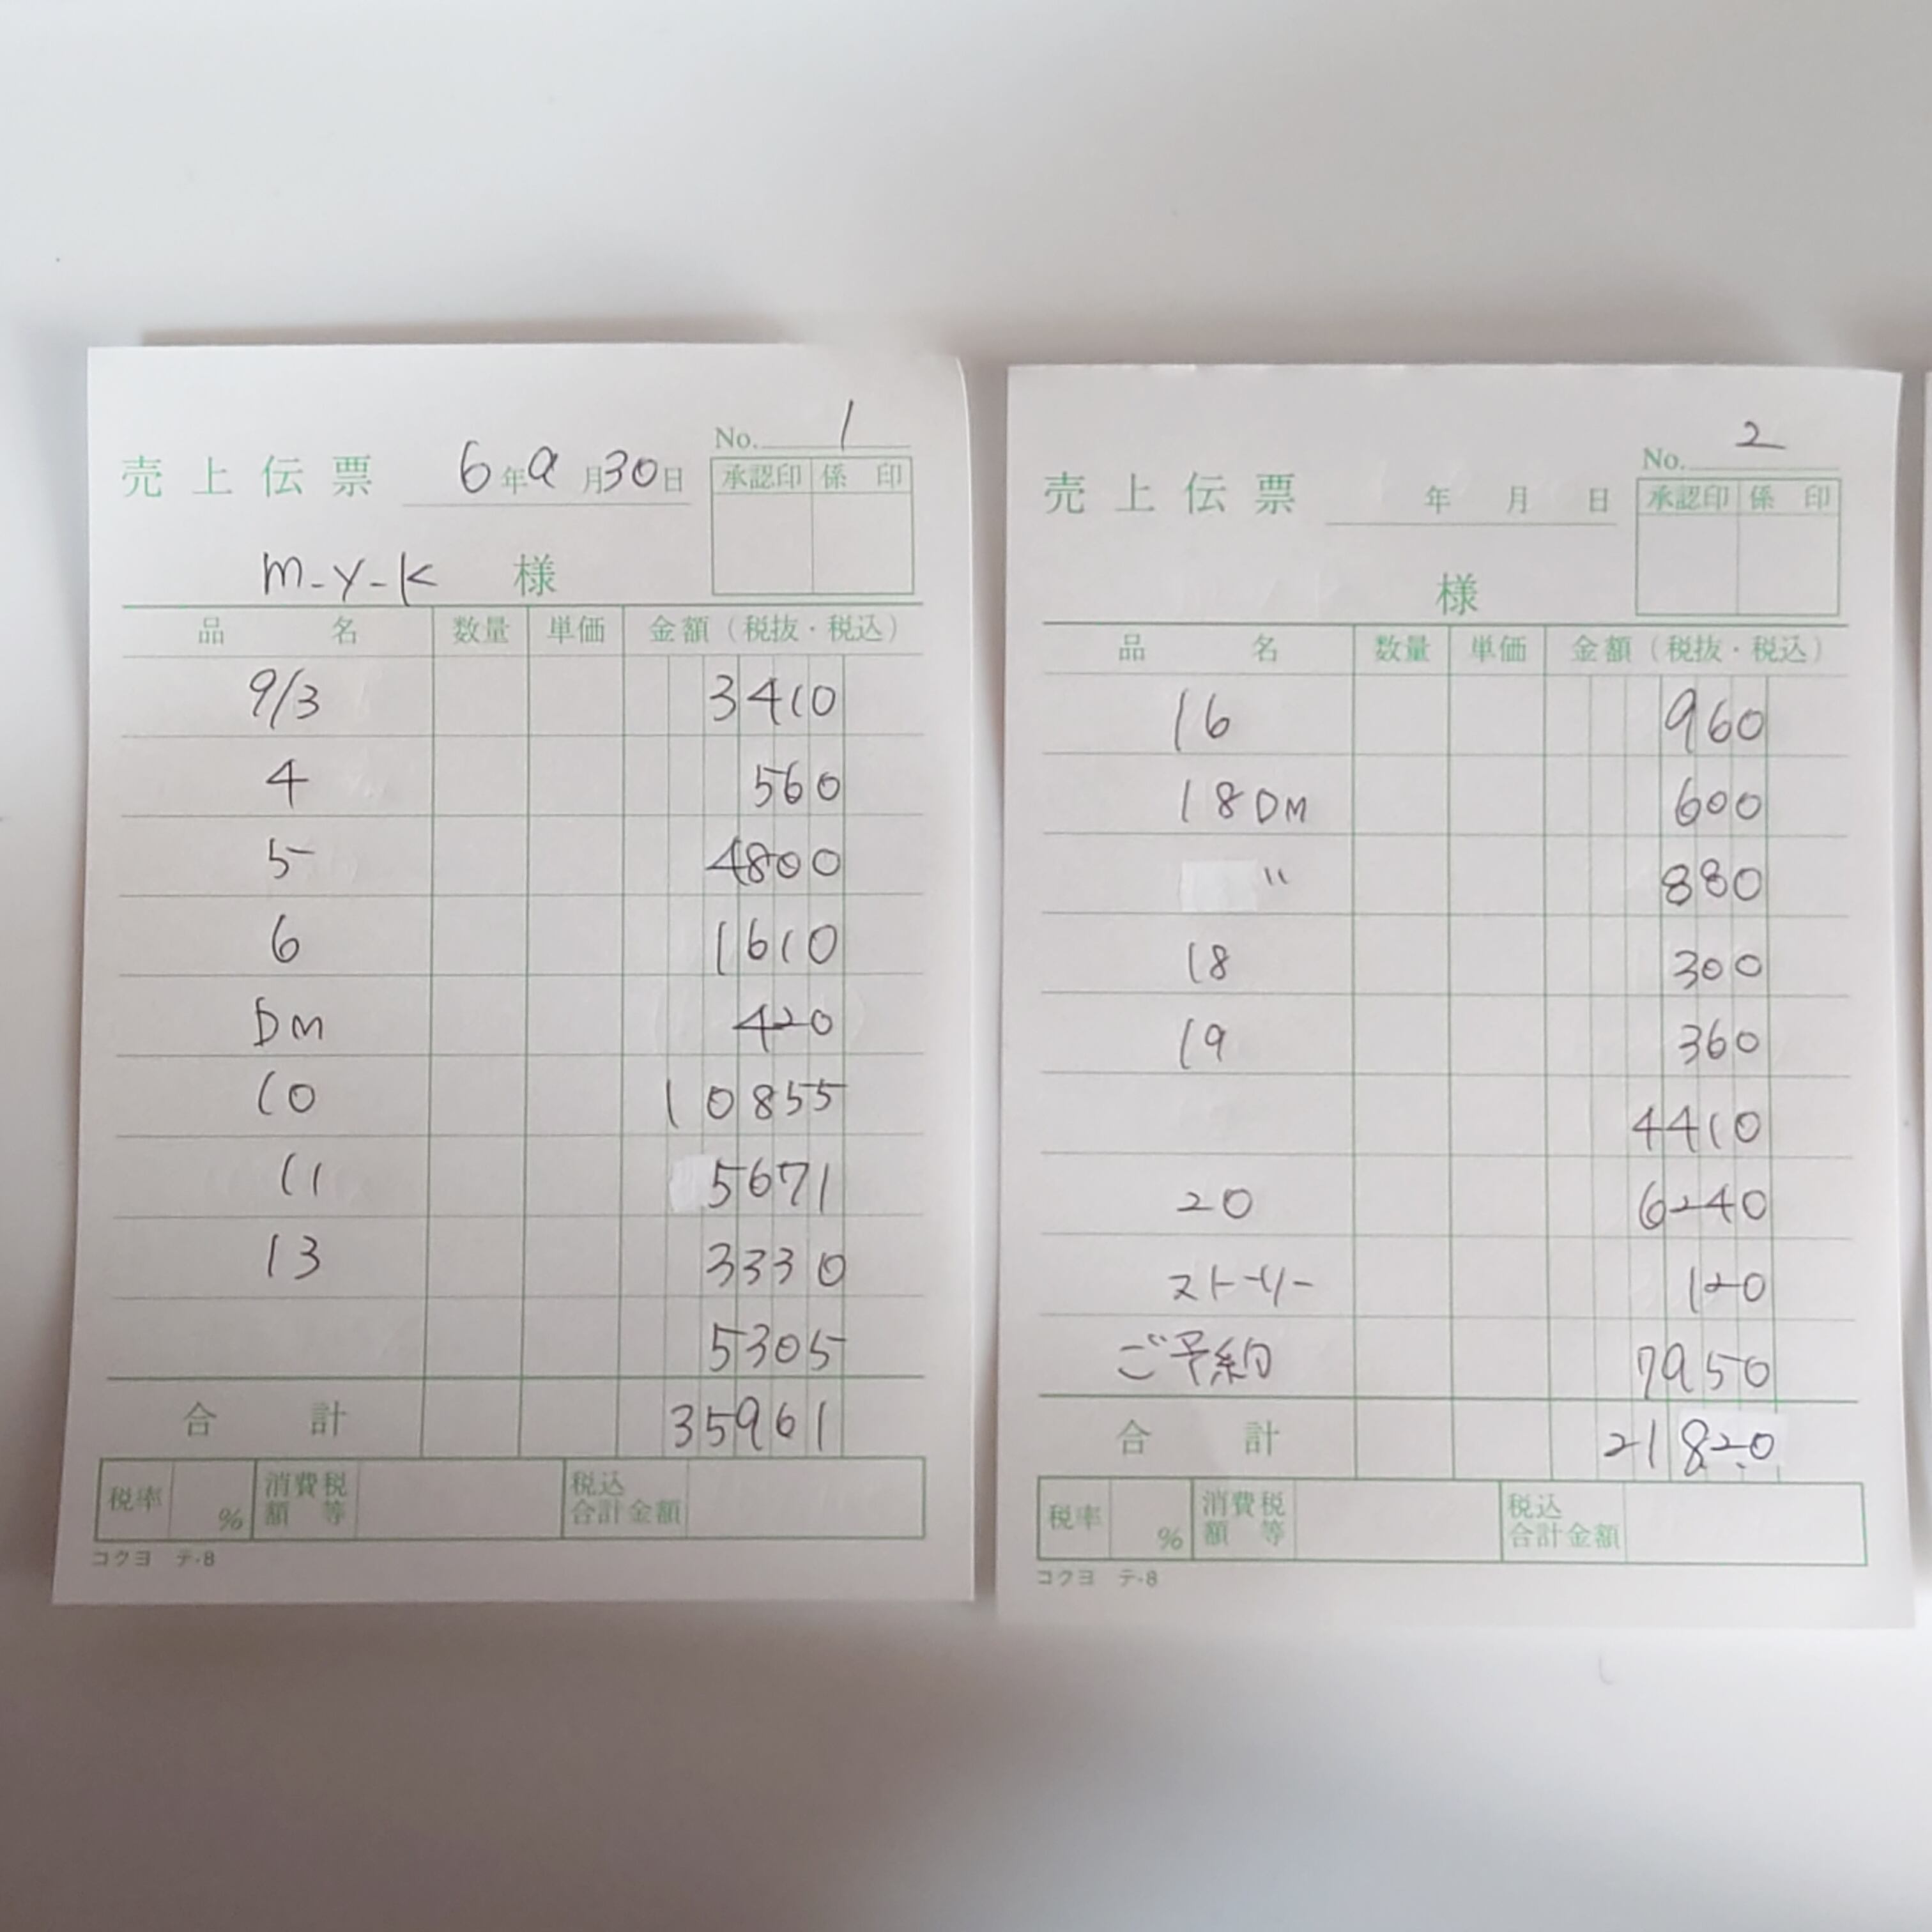 No. 1
売上伝票 6年9月30日
承認印 係印
m-y-k 様
品名 数量 単価 金額(税抜・税込)
9/3 3410
4 560
5 4800
6 1610
Dm 420
10 10855
11 5671
13 3330
5305
合計 35961
税率 % 消費税額等 税込合計金額
コクヨ テ-8
No. 2
売上伝票 年 月 日
承認印 係印
様
品名 数量 単価 金額(税抜・税込)
16 960
18 DM 600
〃 880
18 300
19 360
4410
20 6240
ストーリー 120
ご予約 7950
合計 21820
税率 % 消費税額等 税込合計金額
コクヨ テ-8